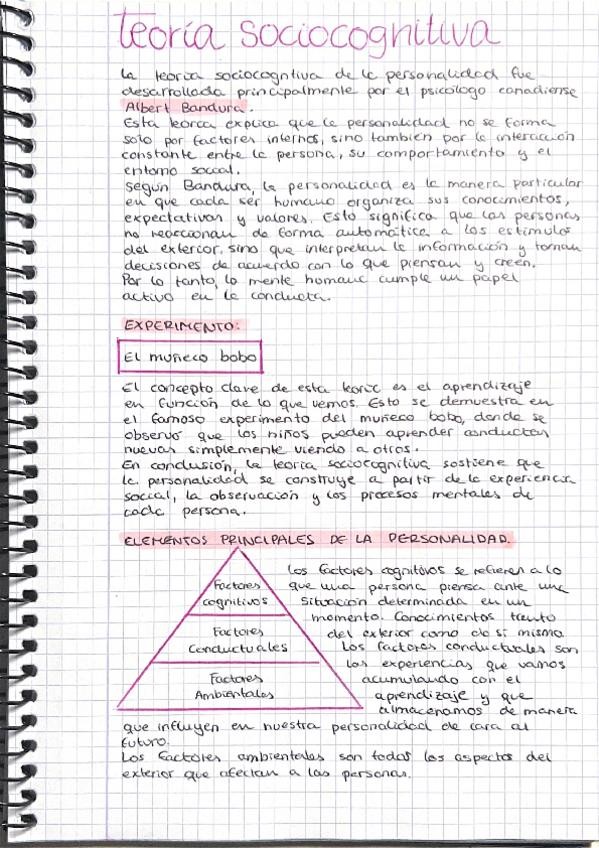 Teoría sociocognitiva
La teoría sociocogntiva de la personalidad fue
desarrollada principalmente por el psicólogo canadiense
Albert Bandura.
Esta teoría explica que la personalidad no se forma
solo por factores internos, sino también por la interacción
constante entre la persona, su comportamiento y el
entorno social.
Según Bandura, la personalidad es la manera particular
en que cada ser humano organiza sus conocimientos,
expectativas y valores. Esto significa que las personas
no reaccionan de forma automática a los estímulos
del exterior, sino que interpretan la información y toman
decisiones de acuerdo con lo que piensan y creen.
Por lo tanto, la mente humana cumple un papel
activo en la conducta.
EXPERIMENTO:
El muñeco bobo
El concepto clave de esta teoría es el aprendizaje
en función de lo que vemos. Esto se demuestra en
el famoso experimento del muñeco bobo, donde se
observó que los niños pueden aprender conductas
nuevas simplemente viendo a otros.
En conclusión, la teoría sociocognitiva sostiene que
la personalidad se construye a partir de la experiencia
social, la observación y los procesos mentales de
cada persona.
ELEMENTOS PRINCIPALES DE LA PERSONALIDAD.
Factores
cognitivos
Factores
Conductuales
Factores
Ambientales
Los factores cognitivos se refieren a lo
que una persona piensa ante una
situación determinada en un
momento. Conocimientos tanto
del exterior como de si mismo.
Los factores conductuales son
las experiencias que vamos
acumulando con el
aprendizaje y que
almacenamos de manera
que influyen en nuestra personalidad de cara al
futuro.
Los factores ambientales son todos los aspectos del
exterior que afectan a las personas.